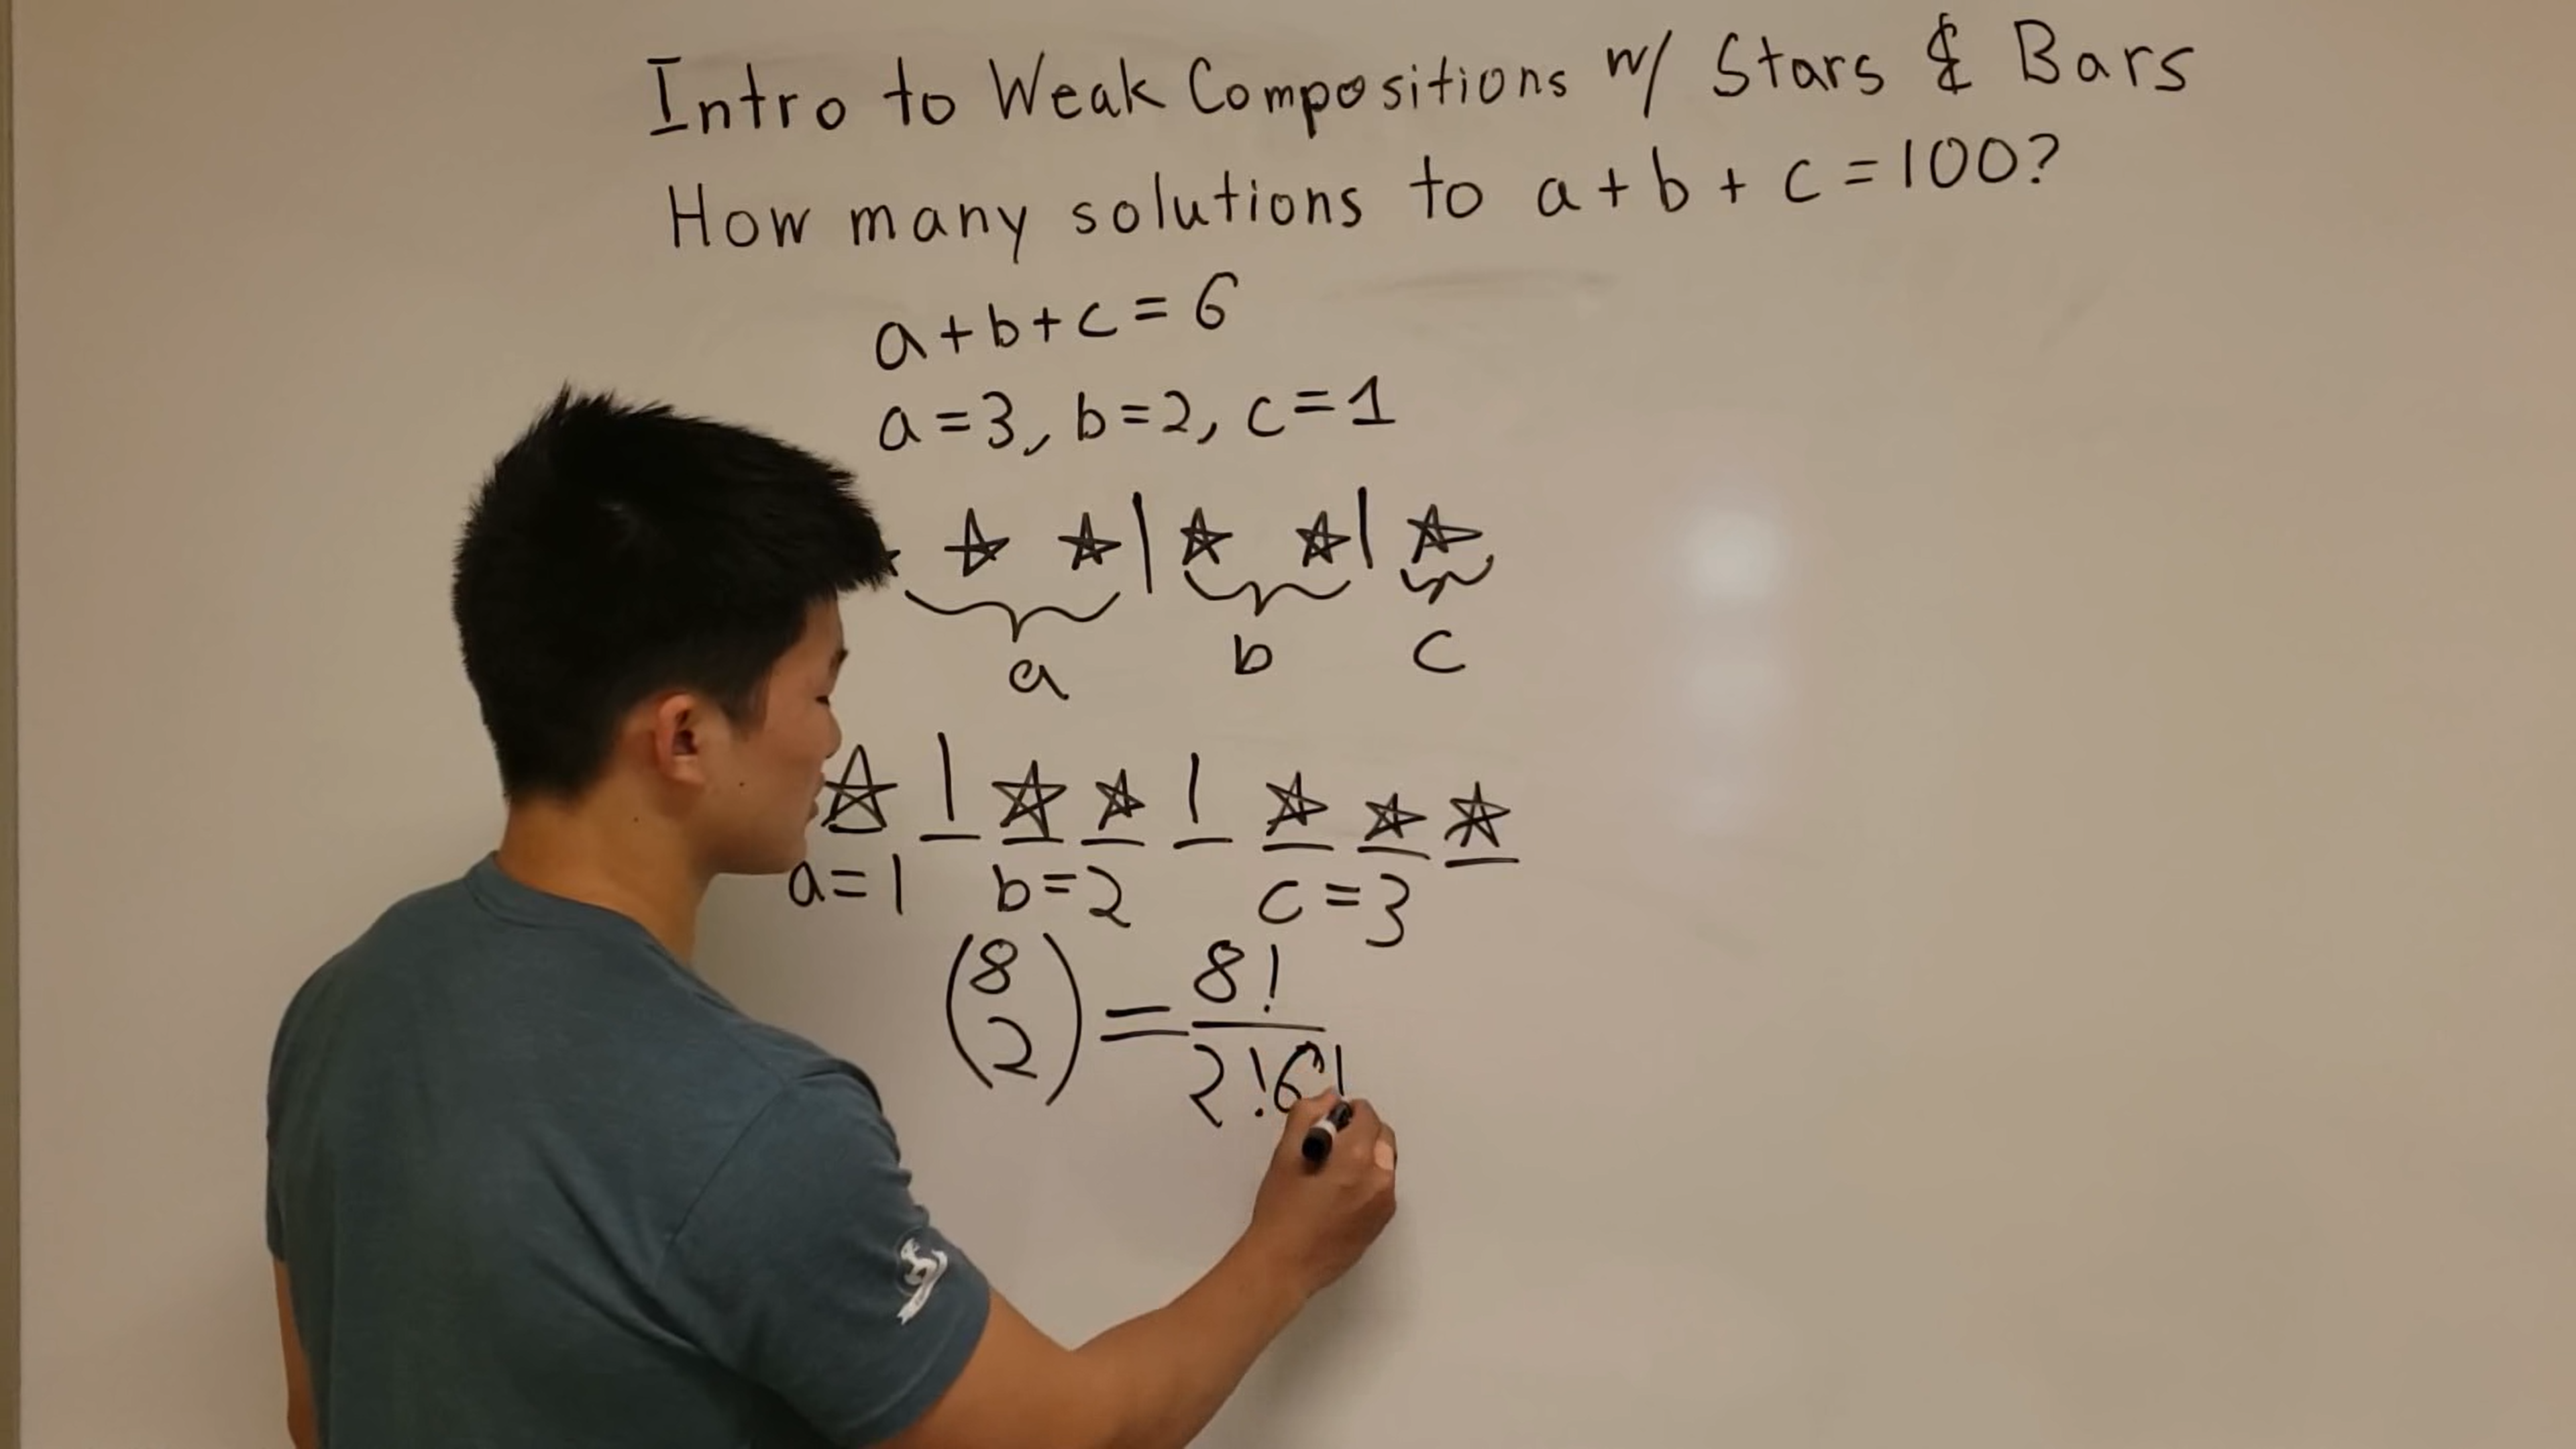 Intro to Weak Compositions w/ Stars & Bars
How many solutions to a+b+c=100?
a+b+c=6
a=3, b=2, c=1
a b c
a=1 b=2 c=3
(8 2) = 8!/2!6!